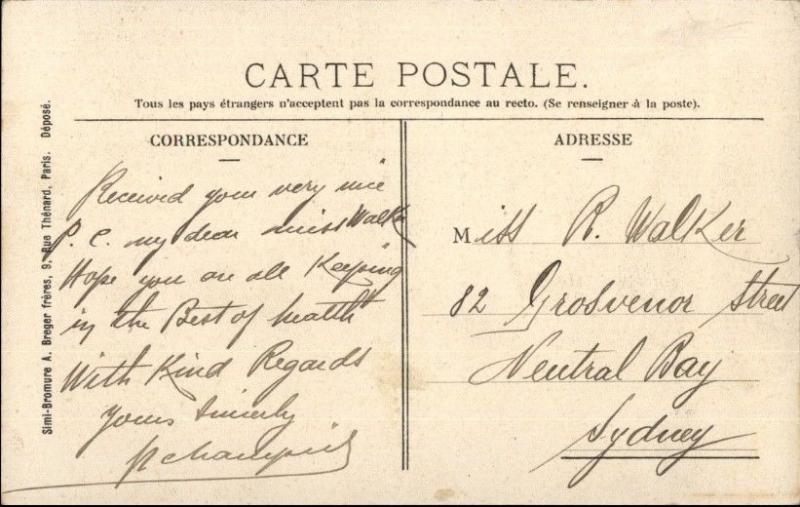 CARTE POSTALE.
Tous les pays étrangers n'acceptent pas la correspondance au recto. (Se renseigner à la poste).
CORRESPONDANCE
Received your very nice
P. C. my dear miss Walker
Hope you are all Keeping
in the Best of health
With Kind Regards
Yours Sincerely
ADRESSE
Miss R. Walker
82 Grosvenor Street
Neutral Bay
Sydney
Simi-Bromure A. Breger frères, 9, Rue Thénard, Paris. Déposé.